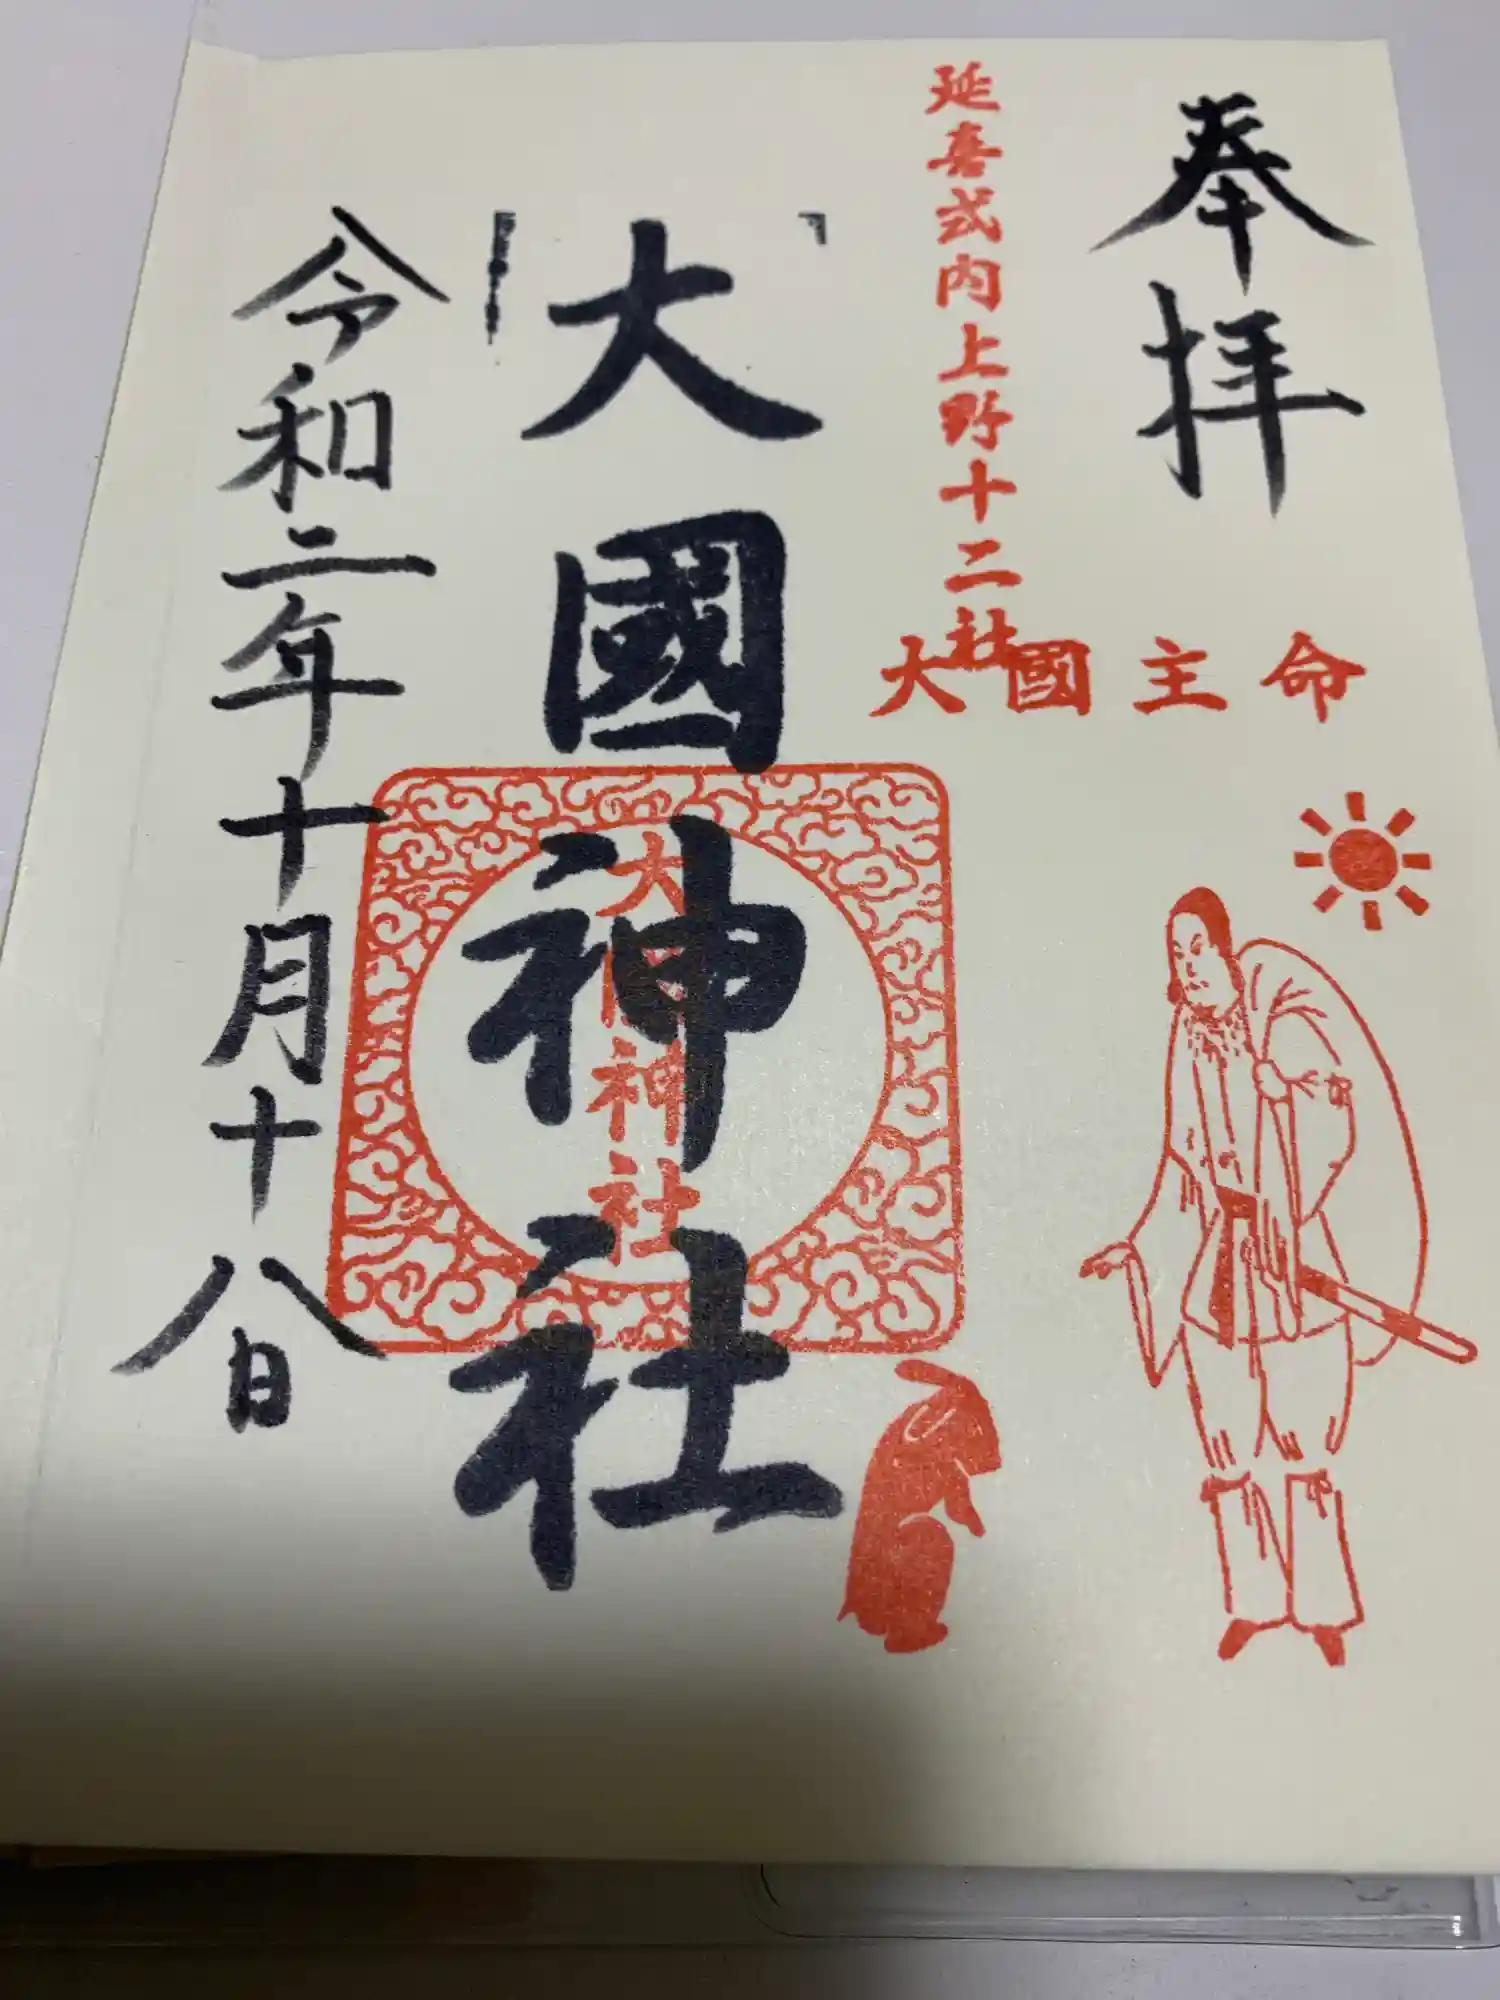 奉拝
延喜式内上野十二社
大國主命
大國神社
大国神社
令和二年十月十八日